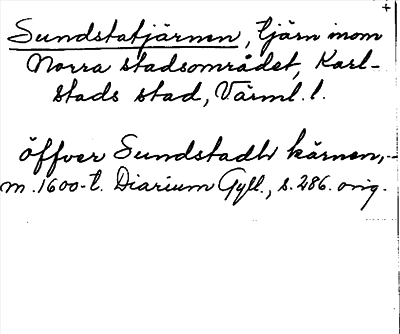 +
Sundstatjärnen, tjärn inom
Norra stadsområdet, Karl-
stads stad, Värml. l.
öffver Sundstadh kärnen,-
m. 1600-t. Diarium Gyll., s. 286. orig.